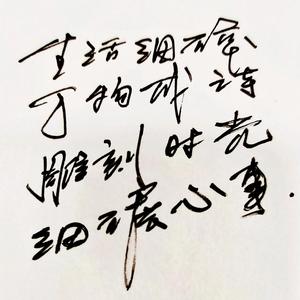 生活细碎
万物成诗
雕刻时光
细碾心事.